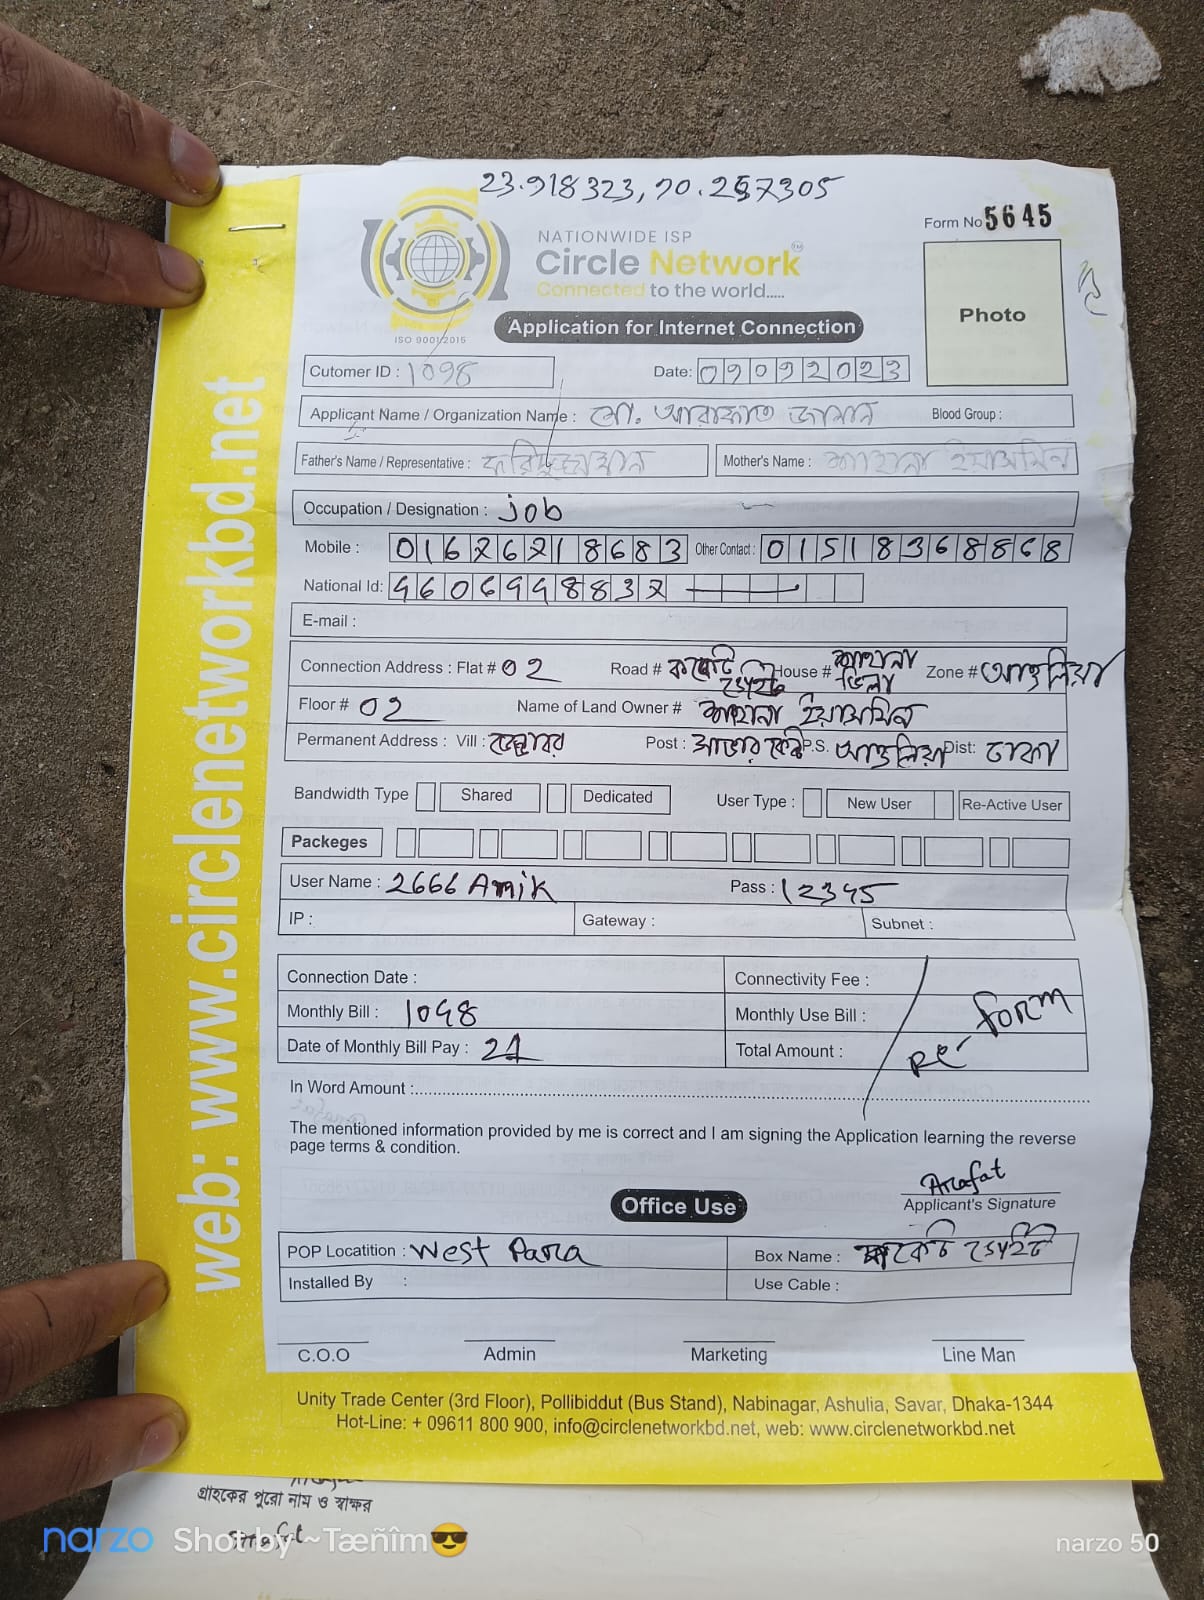 23.918323, 90.257305
Form No 5645
NATIONWIDE ISP
Circle Network
TM
Connected to the world.....
ISO 9001:2015
Application for Internet Connection
Photo
Cutomer ID : 1098
Date: 09092023
Applicant Name / Organization Name : মো. আরাফাত জামান Blood Group :
Father's Name / Representative : ফরিদুজ্জামান Mother's Name : শাহানা ইয়াসমিন
Occupation / Designation : job
Mobile : 01626218683 Other Contact : 01518368868
National Id: 4606998832
E-mail :
Connection Address : Flat # 02 Road # House # শাহানা ভিলা Zone # আশুলিয়া
Floor # 02 Name of Land Owner # শাহানা ইয়াসমিন
Permanent Address : Vill : Post : P.S. আশুলিয়া Dist: ঢাকা
Bandwidth Type Shared Dedicated User Type : New User Re-Active User
Packeges
User Name : 2666 Amik Pass : 12345
IP : Gateway : Subnet :
Connection Date : Connectivity Fee :
Monthly Bill : 1098 Monthly Use Bill :
Date of Monthly Bill Pay : 21 Total Amount :
Re-form
In Word Amount :
The mentioned information provided by me is correct and I am signing the Application learning the reverse
page terms & condition.
Arafat
Applicant's Signature
Office Use
POP Locatition : West Para Box Name :
Installed By : Use Cable :
C.O.O Admin Marketing Line Man
Unity Trade Center (3rd Floor), Pollibiddut (Bus Stand), Nabinagar, Ashulia, Savar, Dhaka-1344
Hot-Line: + 09611 800 900, info@circlenetworkbd.net, web: www.circlenetworkbd.net
web: www.circlenetworkbd.net
গ্রাহকের পুরো নাম ও স্বাক্ষর
Arafat
narzo Shot by ~Tæñîm😎
narzo 50